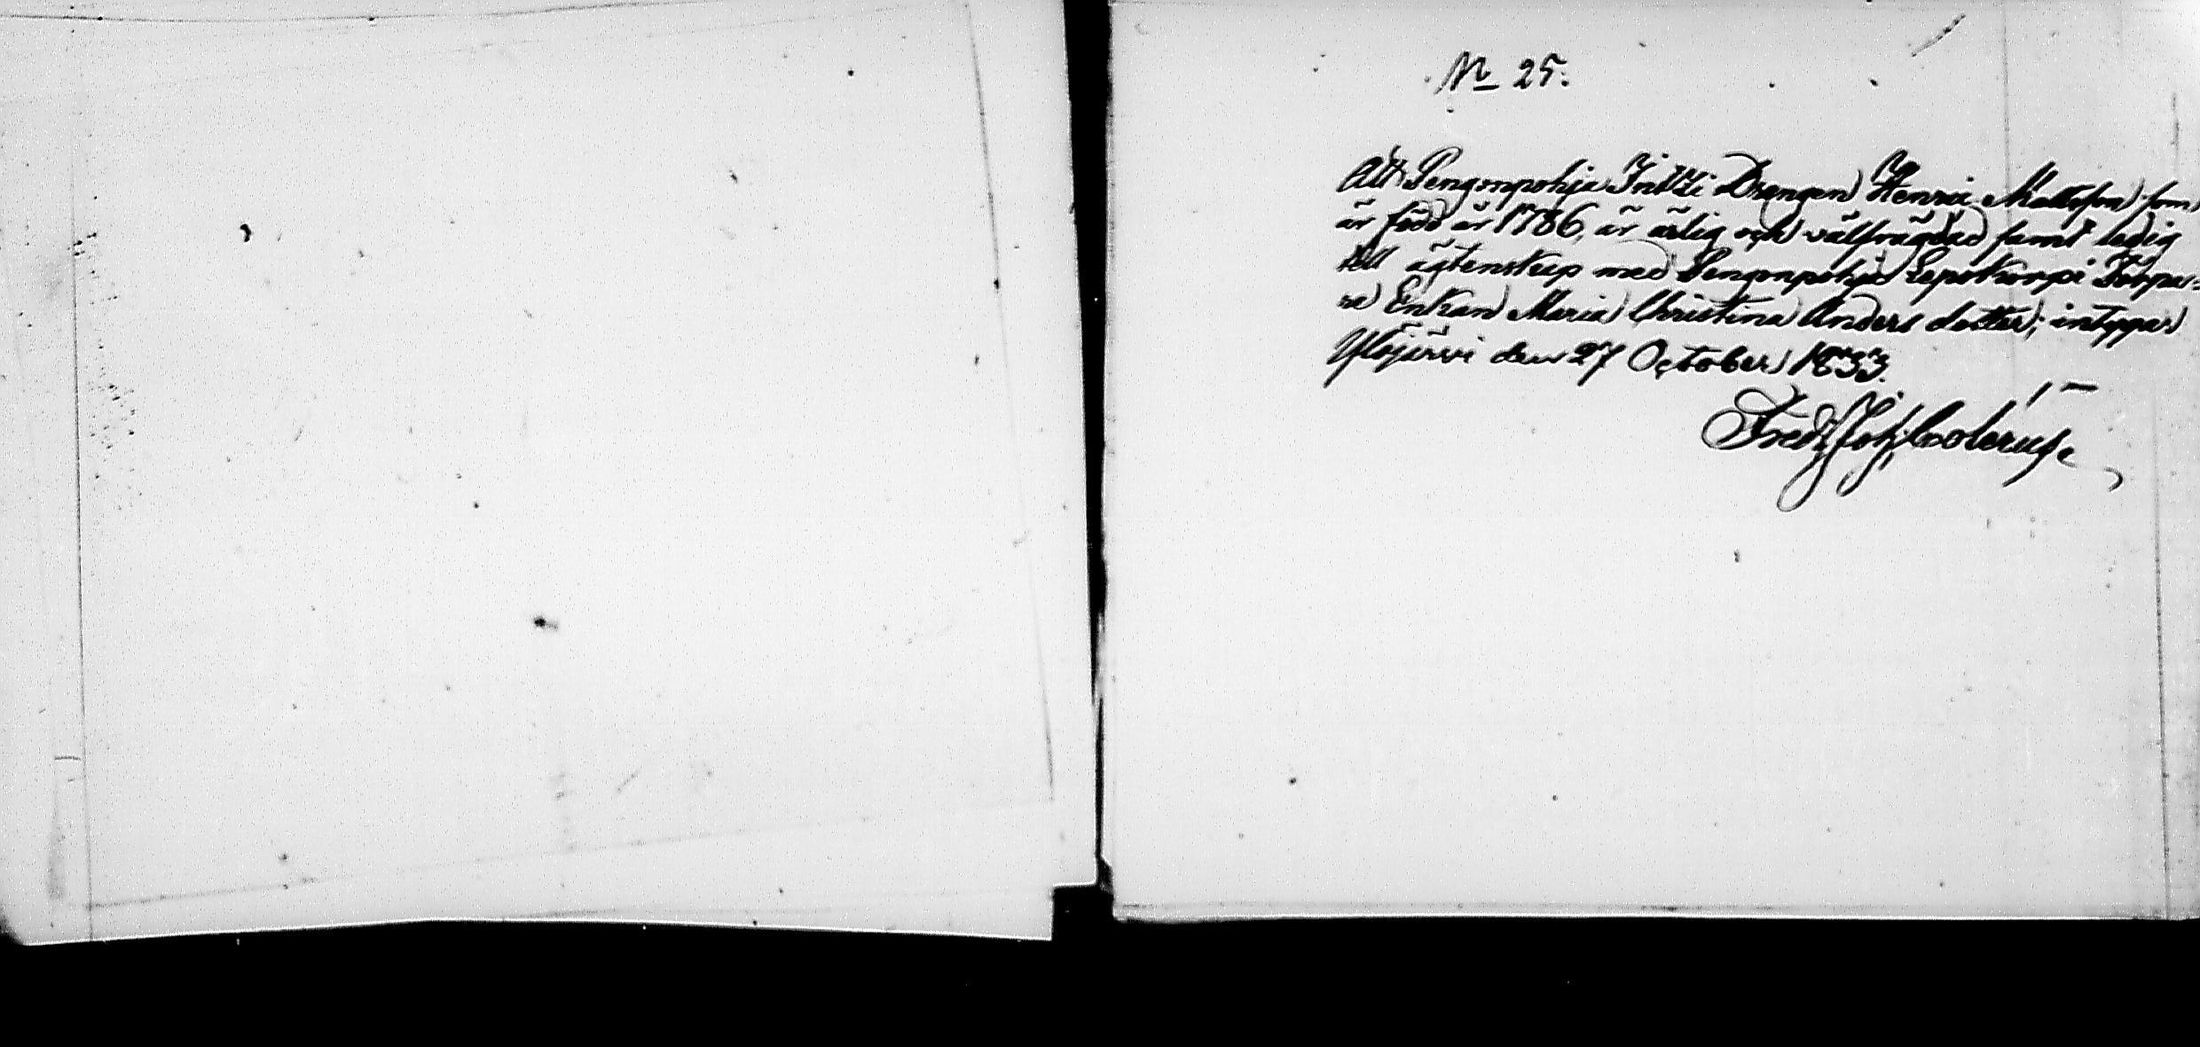 No 25.
Att Pengonpohja Inkki Drengen Henric Mattsson som
är född år 1786, är ärlig och välfrägdad samt ledig
till ägtenskap med Pengonpohja Leponkorpi Torpa-
re Enkan Maria Christina Anders dotter; intygas
Ylöjärvi den 27 October 1833.
Fredr Joh